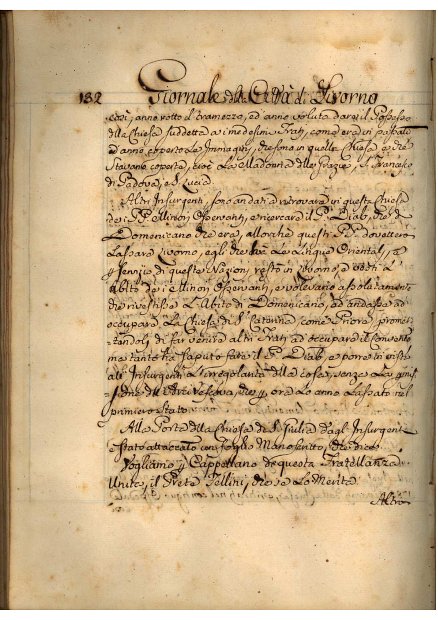 132 Giornale della Città di Livorno
così, anno rotto il tramezzo, ed anno voluto dare il Possesso
della Chiesa suddetta a i medesimi Frati, come era in passato
ed anno coperto le Immagini, che sono in quella Chiesa, e che
stavano coperte, cioè La Madonna delle Grazie, S. Francesco
di Padova, e S. Lucia
Altri Insurgenti, sono andati a ritrovare in questa Chiesa
dei PP. Minori Osservanti, e ricercare il P. Diab, che di
Domenicano che era, allorche questi PP. dovettero
Lasciare Livorno, egli che Le Lingue Orientali, a
servizio di queste Nazioni, restò in Livorno, e vestì L'
Abito dei Minori Osservanti, e volevano assolutamente
che rivestisse L'Abito di Domenicano, ed andasse ad
occupare La Chiesa di S. Caterina, come Priore, promet-
tandoli di far venire altri Frati ad occupare il Convento
ma tanto ha saputo fare il P. Diab, e porre in vista
agli Insurgenti L'irregolarità della cosa, senza La
del Arcivescovo, che ora Lo anno Lasciato nel
primiero Stato
Alla Porta della Chiesa di S. Giulia dagl'Insurgenti
è stato attaccato un foglio Manoscritto, che dice
Vogliamo Cappellano di questa Fratellanza
Unita, il Prete Tellini, che se Lo Merita
Altro